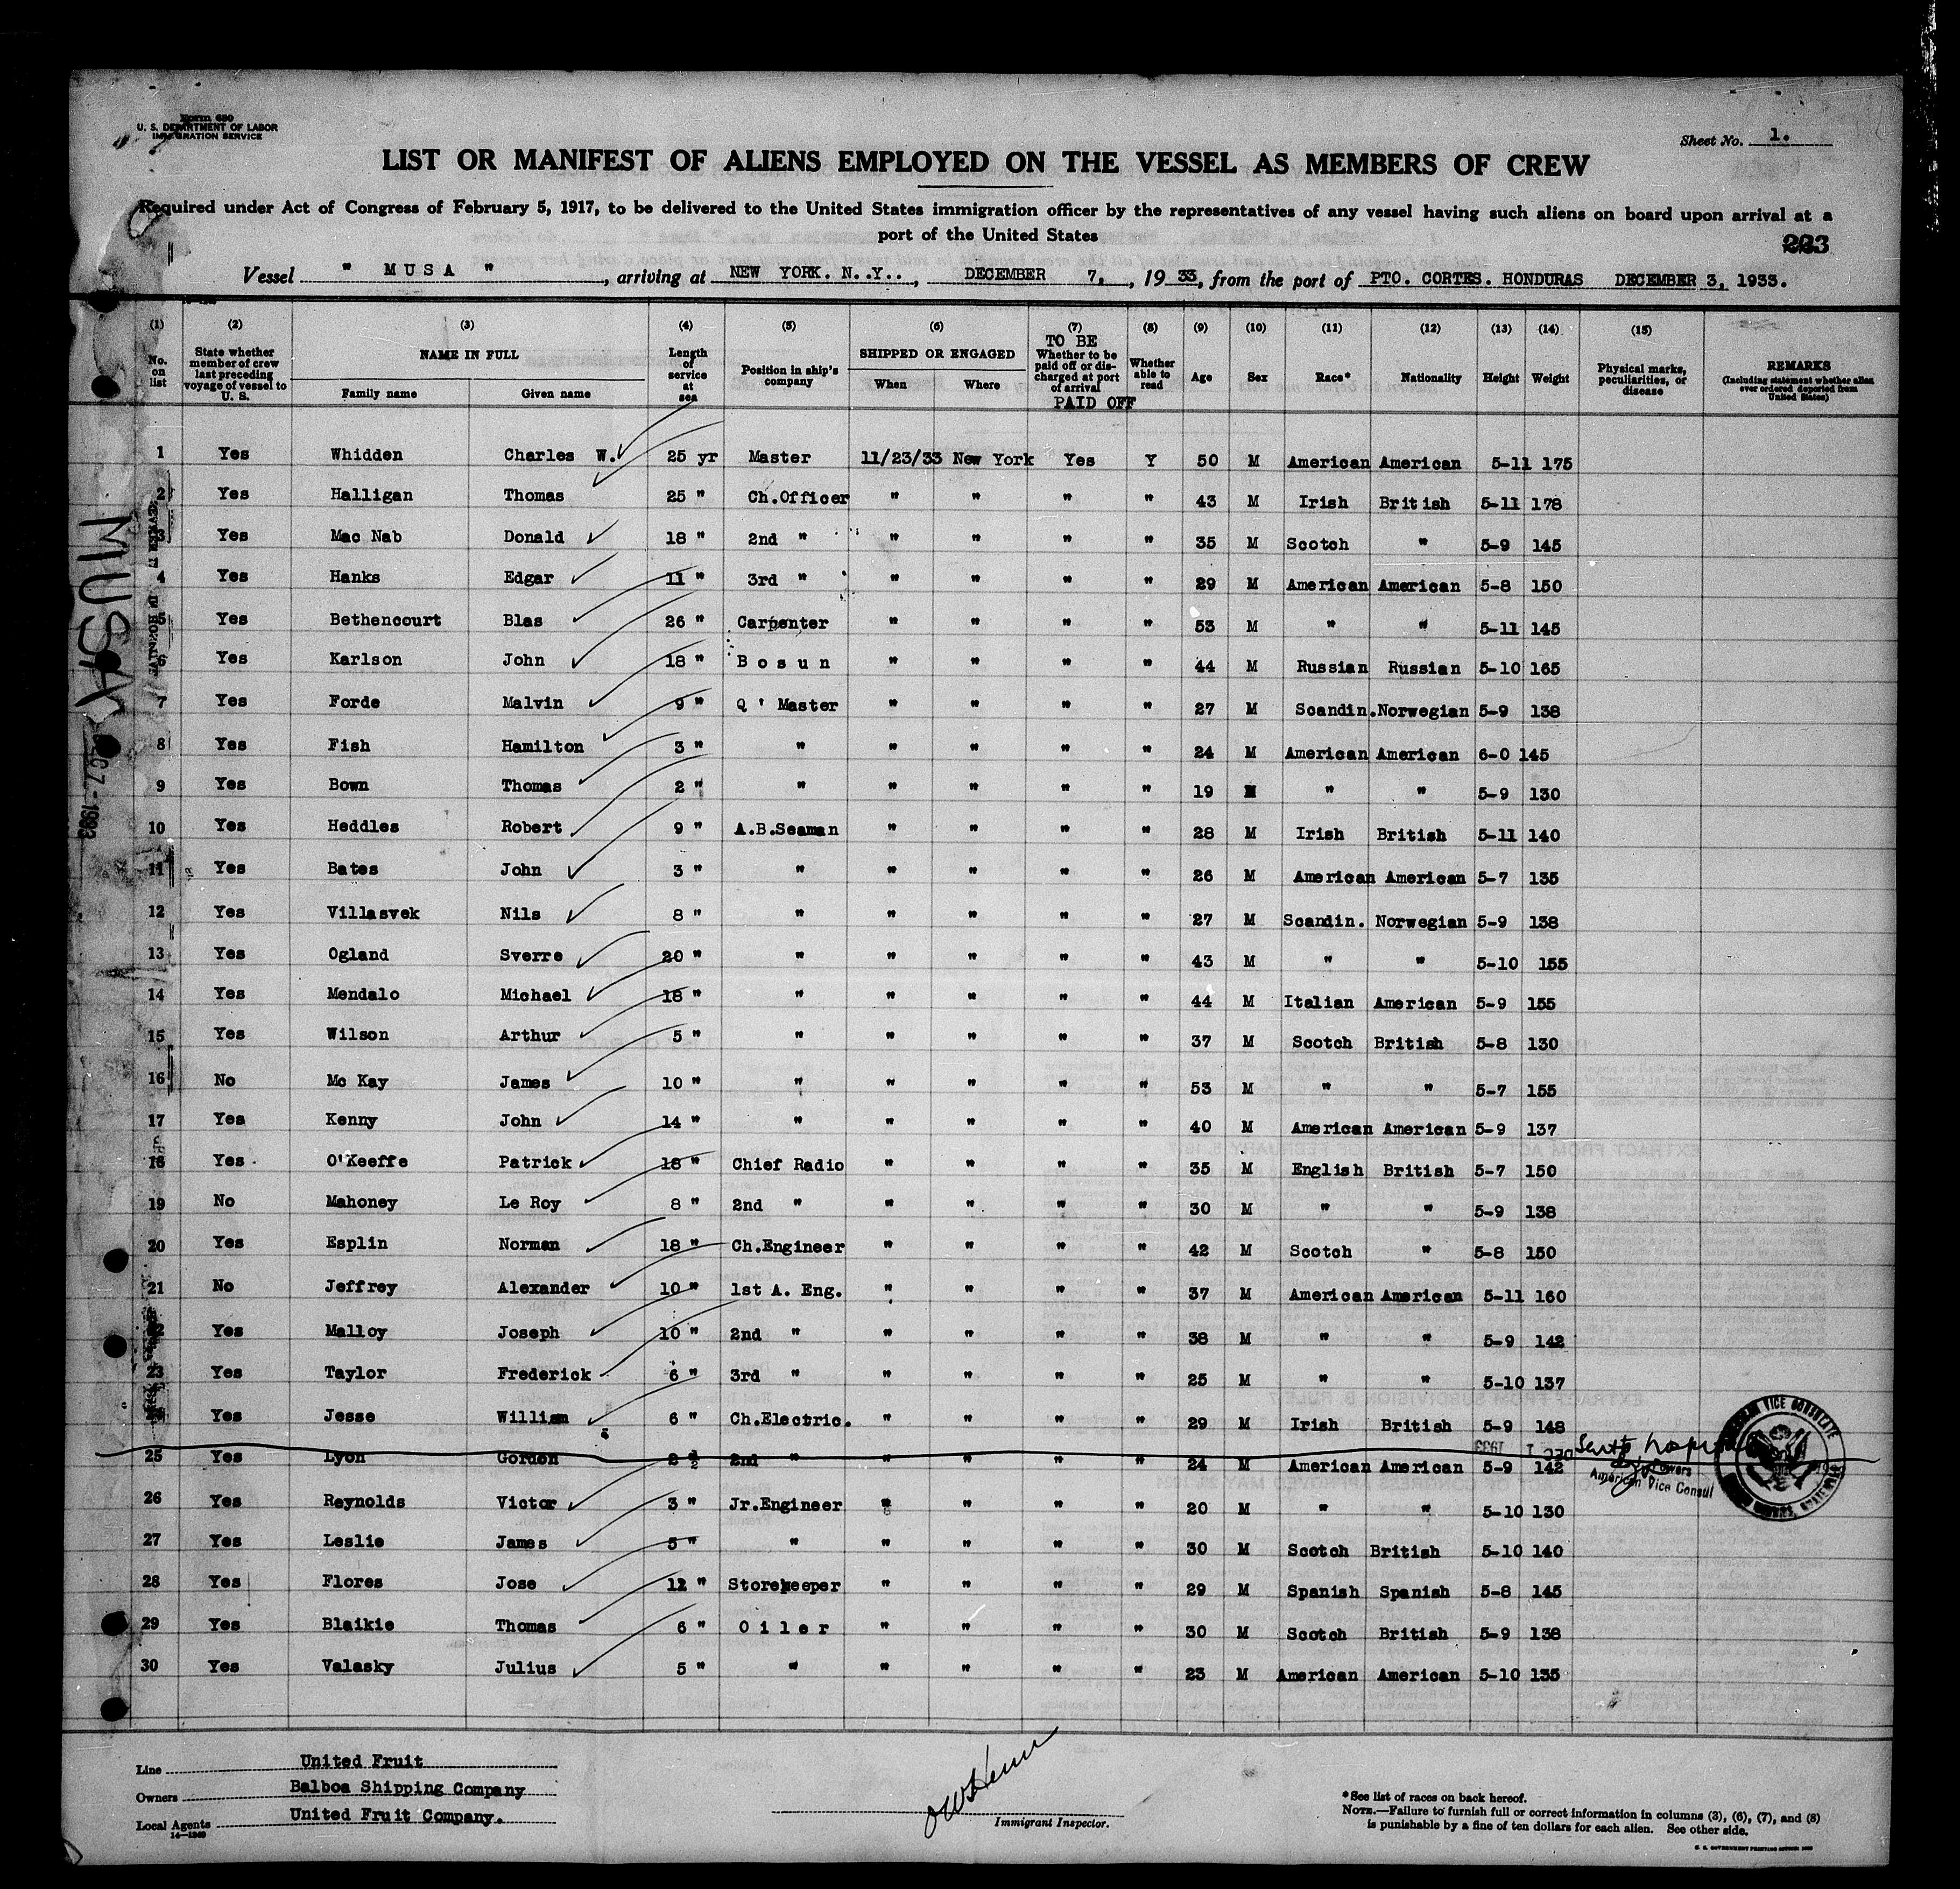 Form 680
U. S. DEPARTMENT OF LABOR
IMMIGRATION SERVICE
Sheet No. 1.
LIST OR MANIFEST OF ALIENS EMPLOYED ON THE VESSEL AS MEMBERS OF CREW
Required under Act of Congress of February 5, 1917, to be delivered to the United States immigration officer by the representatives of any vessel having such aliens on board upon arrival at a
port of the United States
Vessel " MUSA ", arriving at NEW YORK. N.Y.., DECEMBER 7, 1933, from the port of PTO. CORTES. HONDURAS DECEMBER 3, 1933.
(1) (2) (3) (4) (5) (6) (7) (8) (9) (10) (11) (12) (13) (14) (15)
No. on list State whether member of crew last preceding voyage of vessel to U. S. NAME IN FULL Family name Given name Length of service at sea Position in ship's company SHIPPED OR ENGAGED When Where TO BE Whether to be paid off or discharged at port of arrival PAID OFF Whether able to read Age Sex Race* Nationality Height Weight Physical marks, peculiarities, or disease REMARKS (Including statement whether alien ever ordered deported from United States)
1 Yes Whidden Charles W. 25 yr Master 11/23/33 New York Yes Y 50 M American American 5-11 175
2 Yes Halligan Thomas 25 " Ch.Officer " " " " 43 M Irish British 5-11 178
3 Yes Mac Nab Donald 18 " 2nd " " " " " 35 M Scotch " 5-9 145
4 Yes Hanks Edgar 11 " 3rd " " " " " 29 M American American 5-8 150
5 Yes Bethencourt Blas 26 " Carpenter " " " " 53 M " " 5-11 145
6 Yes Karlson John 18 " Bosun " " " " 44 M Russian Russian 5-10 165
7 Yes Forde Malvin 9 " Q ' Master " " " " 27 M Scandin. Norwegian 5-9 138
8 Yes Fish Hamilton 3 " " " " " " 24 M American American 6-0 145
9 Yes Bown Thomas 2 " " " " " " 19 M " " 5-9 130
10 Yes Heddles Robert 9 " A.B.Seaman " " " " 28 M Irish British 5-11 140
11 Yes Bates John 3 " " " " " " 26 M American American 5-7 135
12 Yes Villasvek Nils 8 " " " " " " 27 M Scandin. Norwegian 5-9 138
13 Yes Ogland Sverre 20 " " " " " " 43 M " " 5-10 155
14 Yes Mendalo Michael 18 " " " " " " 44 M Italian American 5-9 155
15 Yes Wilson Arthur 5 " " " " " " 37 M Scotch British 5-8 130
16 No Mc Kay James 10 " " " " " " 53 M " " 5-7 155
17 Yes Kenny John 14 " " " " " " 40 M American American 5-9 137
18 Yes O'Keeffe Patrick 18 " Chief Radio " " " " 35 M English British 5-7 150
19 No Mahoney Le Roy 8 " 2nd " " " " " 30 M " " 5-9 138
20 Yes Esplin Norman 18 " Ch.Engineer " " " " 42 M Scotch " 5-8 150
21 No Jeffrey Alexander 10 " 1st A. Eng. " " " " 37 M American American 5-11 160
22 Yes Malloy Joseph 10 " 2nd " " " " " 38 M " " 5-9 142
23 Yes Taylor Frederick 6 " 3rd " " " " " 25 M " " 5-10 137
24 Yes Jesse William 6 " Ch.Electric. " " " " 29 M Irish British 5-9 148
25 Yes Lyon Gordon 2 ½ 2nd " " " " " 24 M American American 5-9 142
DEC 1 1933
American Vice Consul
AMERICAN VICE CONSULATE
26 Yes Reynolds Victor 3 " Jr.Engineer " " " " 20 M " " 5-10 130
27 Yes Leslie James 5 " " " " " " 30 M Scotch British 5-10 140
28 Yes Flores Jose 12 " Storekeeper " " " " 29 M Spanish Spanish 5-8 145
29 Yes Blaikie Thomas 6 " Oiler " " " " 30 M Scotch British 5-9 138
30 Yes Valasky Julius 5 " " " " " " 23 M American American 5-10 135
MUSA
DEC 7 - 1933
Line United Fruit
Owners Balboa Shipping Company
Local Agents United Fruit Company.
14—1240
Immigrant Inspector.
*See list of races on back hereof.
NOTE.—Failure to furnish full or correct information in columns (3), (6), (7), and (8)
is punishable by a fine of ten dollars for each alien. See other side.